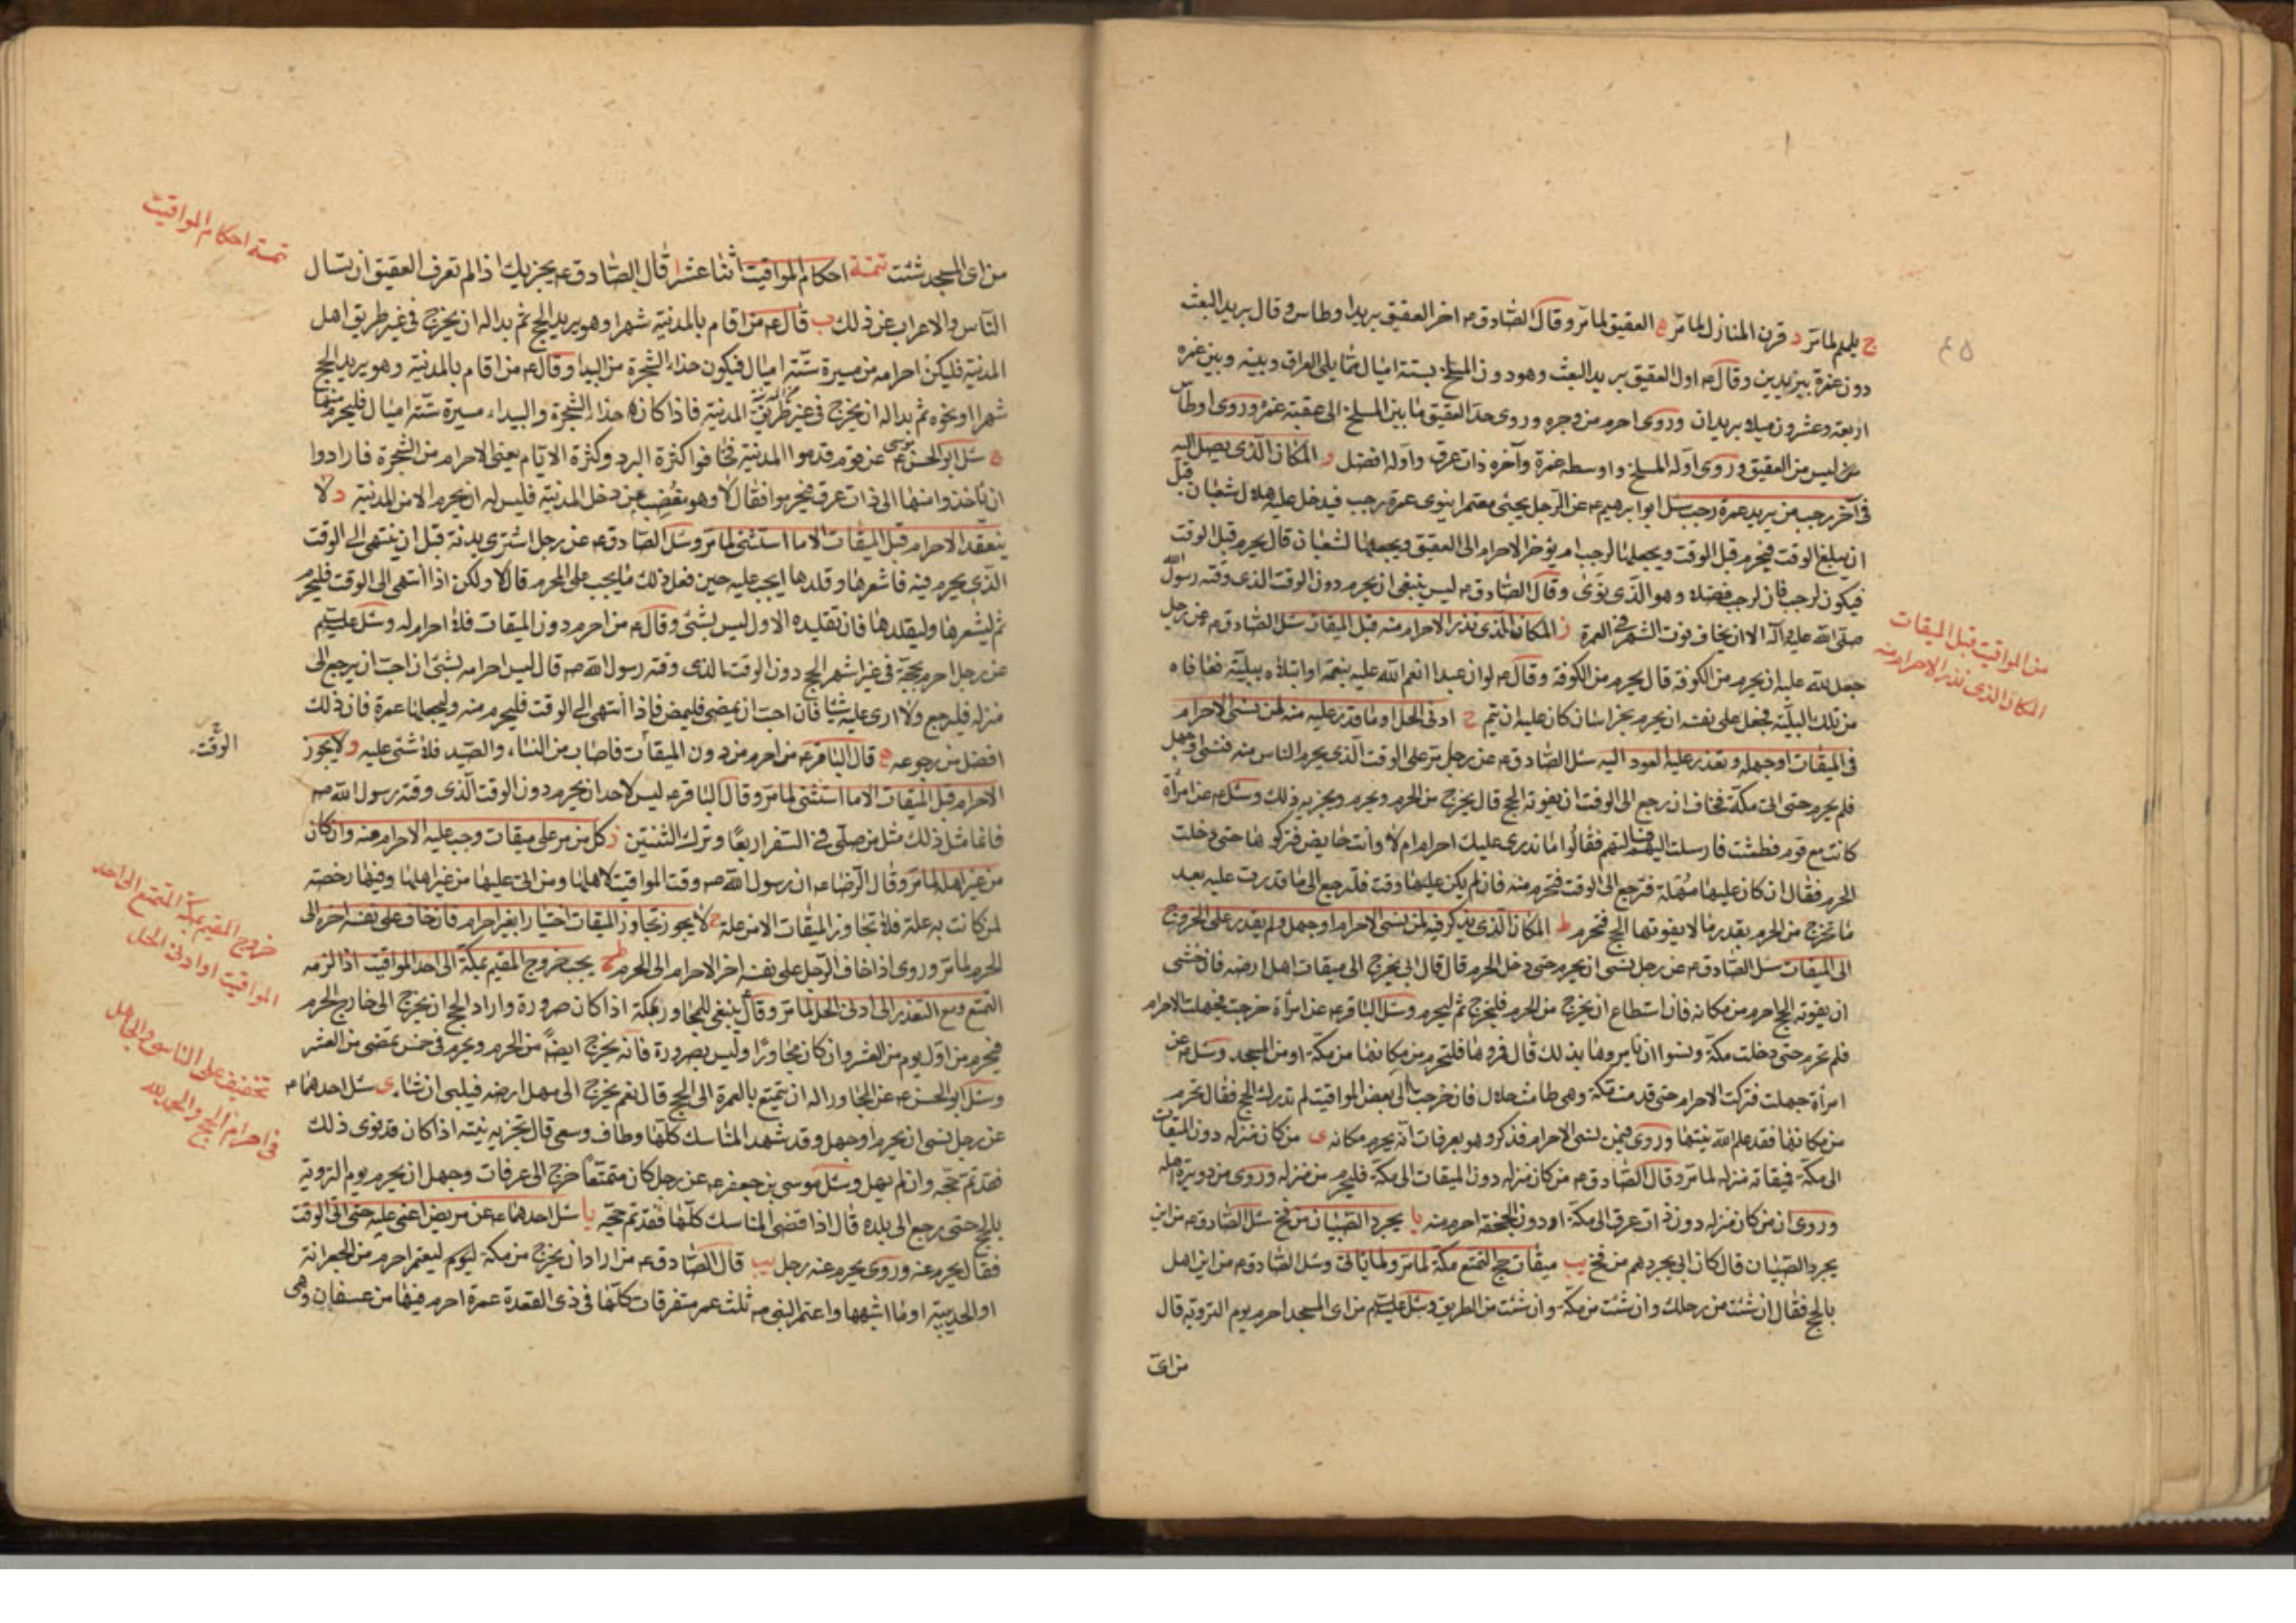 ج يلملم لما مر د قرن المنازل لما مر ه العقيق لما مر وقال الصادق ع اخر العقيق بريد اوطاس وقال بريد البعث
دون غمرة ببريدين وقال ع اول العقيق بريد البعث وهو دون المسلخ بستة اميال مما يلى العراق وبينه وبين غمره
اربعة وعشرون ميلا بريدان وروى احرم من وجره وروى حد العقيق ما بين المسلخ الى عقبة غمره وروى اوطاس
ليس من العقيق وروى اوله المسلخ واوسطه غمرة وآخره ذات عرق واوله افضل و المكان الذى يصل اليه
فى آخر رجب من يريد عمرة رجب سئل ابو ابرهيم ع عن الرجل يجئ معتمرا ينوى عمرة رجب فيدخل عليه هلال شعبان قبل
ان يبلغ الوقت فيحرم قبل الوقت ويجعلها لرجب ام يؤخر الاحرام الى العقيق ويجعلها لشعبان قال يحرم قبل الوقت
فيكون لرجب فان لرجب فضله وهو الذى نوى وقال الصادق ع ليس ينبغى ان يحرم دون الوقت الذى وقته رسول الله
صلى الله عليه وآله الا ان يخاف فوت الشهر فى العمرة ز المكان الذى نذر الاحرام منه قبل الميقات سئل الصادق ع عن رجل
من المواقيت قبل الميقات
المكان الذى نذر الاحرام منه
جعل لله عليه ان يحرم من الكوفة قال يحرم من الكوفة وقال ع لو ان عبدا انعم الله عليه بنعمة او ابتلاه ببلية فعافاه
من تلك البلية فجعل على نفسه ان يحرم بخراسان كان عليه ان يتم ح ادنى الحل او ما قدر عليه منه لمن نسى الاحرام
فى الميقات او جهله وتعذر عليه العود اليه سئل الصادق ع عن رجل مر على الوقت الذى يحرم الناس منه فنسى او جهل
فلم يحرم حتى اتى مكة فخاف ان رجع الى الوقت ان يفوته الحج قال يخرج من الحرم ويحرم ويجزيه ذلك وسئل ع عن امرأة
كانت مع قوم فطمثت فارسلت اليهم فسالتهم فقالوا ما ندرى عليك احرام ام لا وانت حايض فتركوها حتى دخلت
الحرم فقال ان كان عليها مهلة فترجع الى الوقت فتحرم منه فان لم يكن عليها وقت فلترجع الى ما قدرت عليه بعد
ما تخرج من الحرم بقدر ما لا يفوتها الحج فتحرم ط المكان الذى يذكر فيه لمن نسى الاحرام او جهل ولم يقدر على الخروج
الى الميقات سئل الصادق ع عن رجل نسى ان يحرم حتى دخل الحرم قال قال ابى يخرج الى ميقات اهل ارضه فان خشى
ان يفوته الحج احرم من مكانه فان استطاع ان يخرج من الحرم فليخرج ثم ليحرم وسئل الباقر ع عن امرأة خرجت فجهلت الاحرام
فلم تحرم حتى دخلت مكة ونسوا ان يامروها بذلك قال فمروها فلتحرم من مكانها من مكة او من المسجد وسئل ع عن
امرأة جهلت فتركت الاحرام حتى قدمت مكة وهى طامث حلال فان خرجت الى بعض المواقيت لم تدرك الحج فقال تحرم
من مكانها فقد علم الله نيتها وروى فيمن نسى الاحرام فذكر وهو بعرفات انه يحرم مكانه ى من كان منزله دون الميقات
الى مكة فميقاته منزله لما مر وقال الصادق ع من كان منزله دون الميقات الى مكة فليحرم من منزله وروى من دويرة اهله
وروى ان من كان منزله دون ذات عرق الى مكة او دون الجحفة احرم منه يا يجرد الصبيان من فخ سئل الصادق ع من اين
يجرد الصبيان قال كان ابى يجردهم من فخ يب ميقات حج التمتع مكة لما مر ولما ياتى وسئل الصادق ع من اين اهل
بالحج فقال ان شئت من رحلك وان شئت من مكة وان شئت من الطريق وسئل عليه السلم من اى المسجد احرم يوم التروية قال
من اى
تتمة احكام المواقيت
من اى المسجد شئت تتمة احكام المواقيت اثنا عشر ا قال الصادق ع يجزيك اذا لم تعرف العقيق ان تسال
الناس والاعراب عن ذلك ب قال ع من اقام بالمدينة شهرا وهو يريد الحج ثم بدا له ان يخرج فى غير طريق اهل
المدينة فليكن احرامه من مسيرة ستة اميال فيكون حذاء الشجرة من البيداء وقال ع من اقام بالمدينة وهو يريد الحج
شهرا او نحوه ثم بدا له ان يخرج فى غير طريق المدينة فاذا كان حذاء الشجرة والبيداء مسيرة ستة اميال فليحرم منها
ج سئل ابو الحسن موسى ع عن قوم قدموا المدينة فخافوا كثرة البرد وكثرة الايام يعنى الاحرام من الشجرة فارادوا
ان ياخذوا منها الى ذات عرق فيحرموا فقال لا وهو مغضب من دخل المدينة فليس له ان يحرم الا من المدينة د لا
ينعقد الاحرام قبل الميقات الا ما استثنى لما مر وسئل الصادق ع عن رجل اشترى بدنة قبل ان ينتهى الى الوقت
الذى يحرم فيه فاشعرها وقلدها ايجب عليه حين فعل ذلك ما يجب على المحرم قال لا ولكن اذا انتهى الى الوقت فليحرم
ثم ليشعرها وليقلدها فان تقليده الاول ليس بشئ وقال ع من احرم دون الميقات فلا احرام له وسئل عليه السلم
عن رجل احرم بحجة فى غير اشهر الحج دون الوقت الذى وقته رسول الله ص قال ليس احرامه بشئ ان احب ان يرجع الى
منزله فليرجع ولا ارى عليه شيئا فان احب ان يمضى فليمض فاذا انتهى الى الوقت فليحرم منه وليجعلها عمرة فان ذلك
افضل من رجوعه ه قال الباقر ع من احرم من دون الميقات فاصاب من النساء والصيد فلا شئ عليه و لا يجوز
الوقت
الاحرام قبل الميقات الا ما استثنى لما مر وقال الباقر ع ليس لاحد ان يحرم دون الوقت الذى وقته رسول الله ص
فانما مثل ذلك مثل من صلى فى السفر اربعا وترك الثنتين ز كل من مر على ميقات وجب عليه الاحرام منه وان كان
من غير اهله لما مر وقال الرضا ع ان رسول الله ص وقت المواقيت لاهلها ومن اتى عليها من غير اهلها وفيها رخصة
لمن كانت به علة فلا تجاوز الميقات الا من علة ح لا يجوز تجاوز الميقات اختيارا بغير احرام فان خاف على نفسه اخره الى
الحرم لما مر وروى اذا خاف الرجل على نفسه اخر الاحرام الى الحرم ط يجب خروج المقيم بمكة الى احد المواقيت اذا لزمه
خروج المقيم بمكة المتمتع الى احد
المواقيت او ادنى الحل
التمتع ومع التعذر الى ادنى الحل لما مر وقال ينبغى للمجاور بمكة اذا كان صرورة واراد الحج ان يخرج الى خارج الحرم
فيحرم من اول يوم من العشر وان كان مجاورا وليس بصرورة فانه يخرج ايضا من الحرم ويحرم فى خمس تمضى من العشر
تخفيف على الناسى والجاهل
فى احرام الحج والحمد لله
وسئل ابو الحسن ع عن المجاور اله ان يتمتع بالعمرة الى الحج قال نعم يخرج الى مهل ارضه فيلبى ان شاء ى سئل احدهما ع
عن رجل نسى ان يحرم او جهل وقد شهد المناسك كلها وطاف وسعى قال تجزيه نيته اذا كان قد نوى ذلك
فقد تم حجه وان لم يهل وسئل موسى بن جعفر ع عن رجل كان متمتعا خرج الى عرفات وجهل ان يحرم يوم التروية
بالحج حتى رجع الى بلده قال اذا قضى المناسك كلها فقد تم حجه يا سئل احدهما ع عن مريض اغمى عليه حتى اتى الوقت
فقال يحرم عنه وروى يحرم عنه رجل يب قال الصادق ع من اراد ان يخرج من مكة ليوم ليعتمر احرم من الجعرانة
او الحديبية او ما اشبهها واعتمر النبى ص ثلث عمر متفرقات كلها فى ذى القعدة عمرة احرم فيها من عسفان وهى